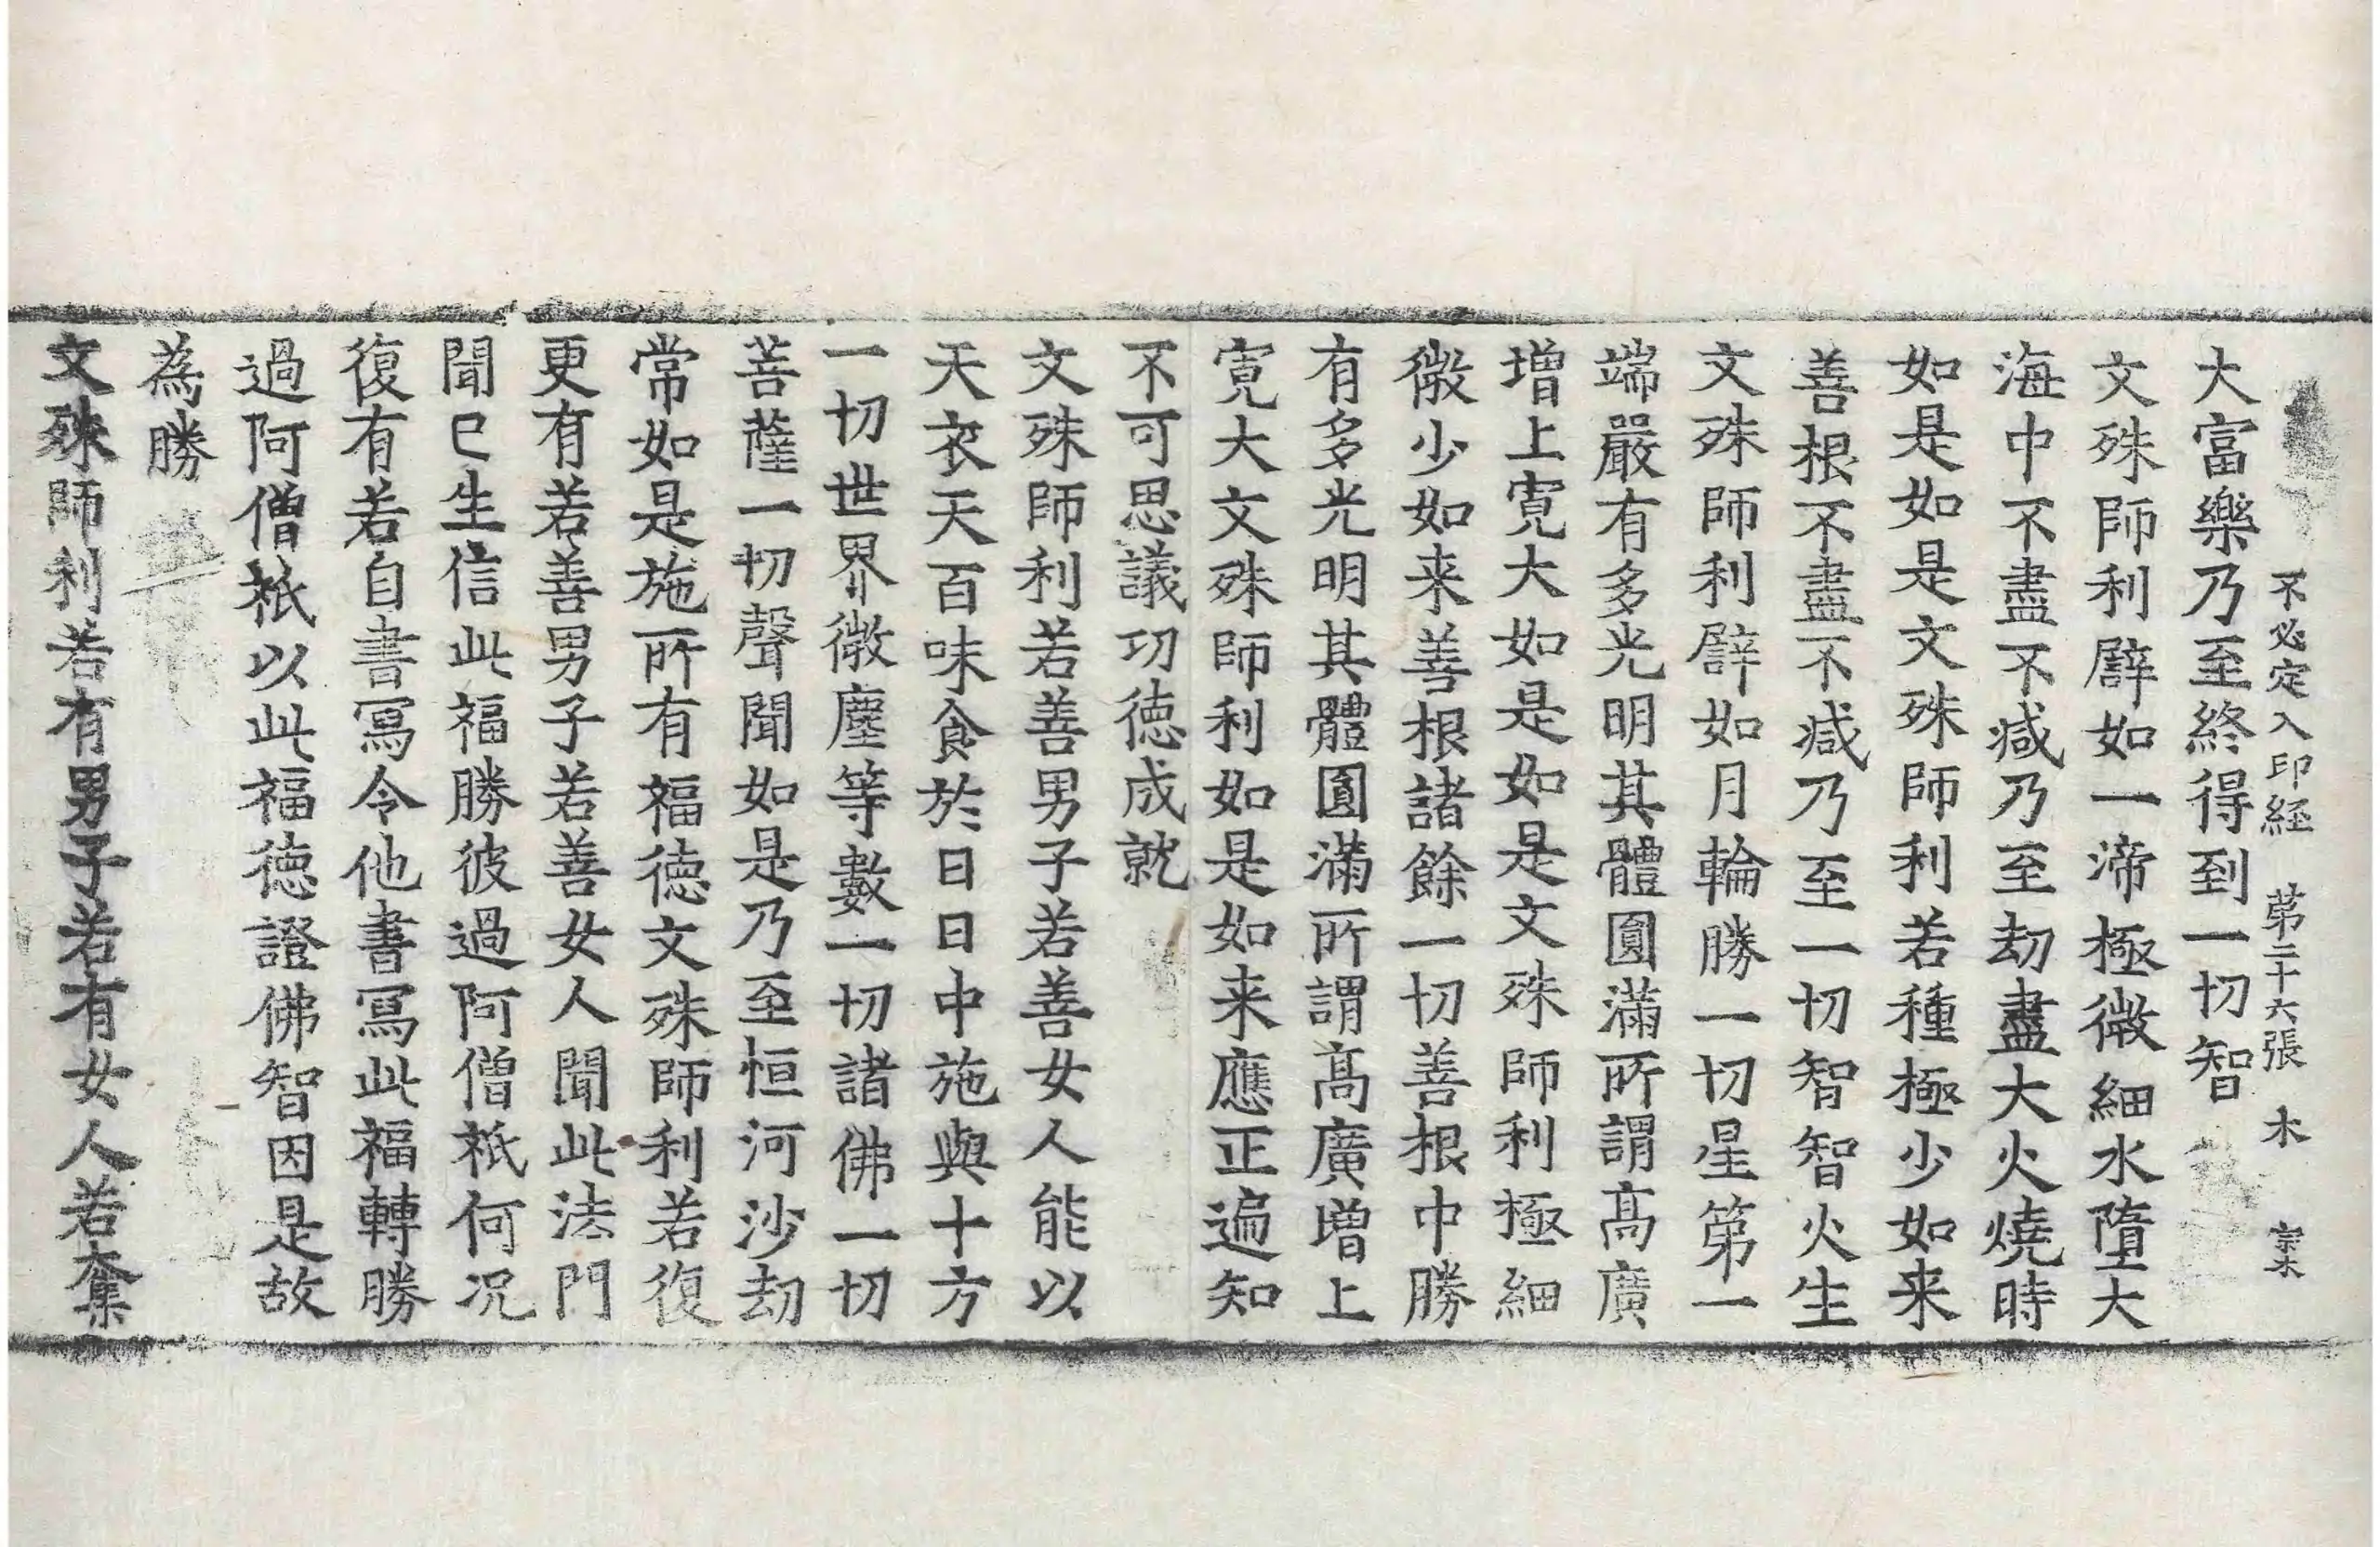 不必定入印経 苐二十六張 木 宗木
大富樂乃至終得到一切智
文殊師利譬如一渧極微細水墮大
海中不盡不减乃至劫盡大火燒時
如是如是文殊師利若種極少如来
善根不盡不减乃至一切智智火生
文殊師利譬如月輪勝一切星第一
端嚴有多光明其體圓滿所謂髙廣
增上寬大如是如是文殊師利極細
微少如来善根諸餘一切善根中勝
有多光明其體圓滿所謂髙廣増上
寬大文殊師利如是如来應正遍知
不可思議功徳成就
文殊師利若善男子若善女人能以
天衣天百味食於日日中施與十方
一切世界微塵等數一切諸佛一切
菩薩一切聲聞如是乃至恒河沙劫
常如是施所有福德文殊師利若復
更有若善男子若善女人聞此法門
聞已生信此福勝彼過阿僧祇何况
復有若自書冩令他書冩此福轉勝
過阿僧祇以此福德證佛智因是故
為勝
文殊師利若有男子若有女人若奪